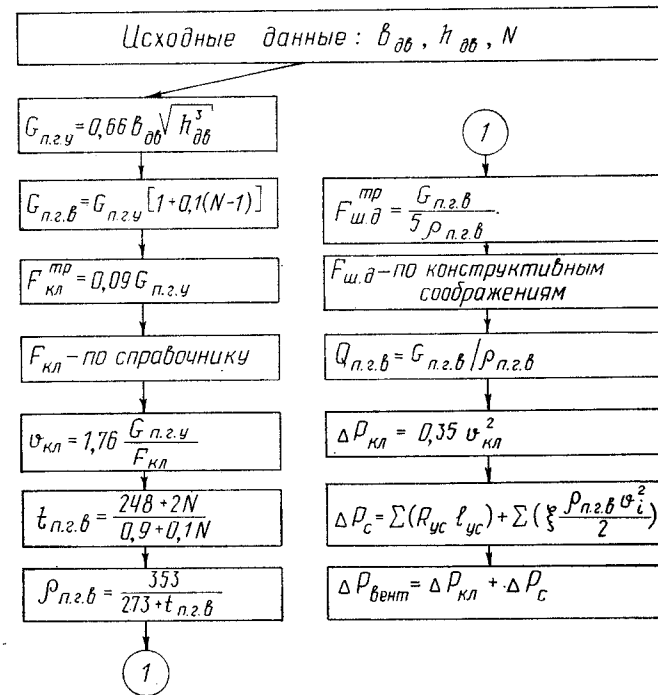 Исходные данные: в_дв, h_дв, N
G_п.г.у = 0,66 в_дв √h³_дв
G_п.г.в = G_п.г.у [1+0,1(N-1)]
F^тр_кл = 0,09 G_п.г.у
F_кл – по справочнику
υ_кл = 1,76 G_п.г.у / F_кл
t_п.г.в = 248 + 2N / 0,9 + 0,1N
ρ_п.г.в = 353 / 273 + t_п.г.в
1
1
F^тр_ш.д = G_п.г.в / 5 ρ_п.г.в.
F_ш.д – по конструктивным
соображениям
Q_п.г.в = G_п.г.в / ρ_п.г.в
Δ P_кл = 0,35 υ²_кл
Δ P_с = Σ(R_ус ℓ_ус) + Σ(ξ ρ_п.г.в υ²_i / 2)
Δ P_вент = Δ P_кл + Δ P_с